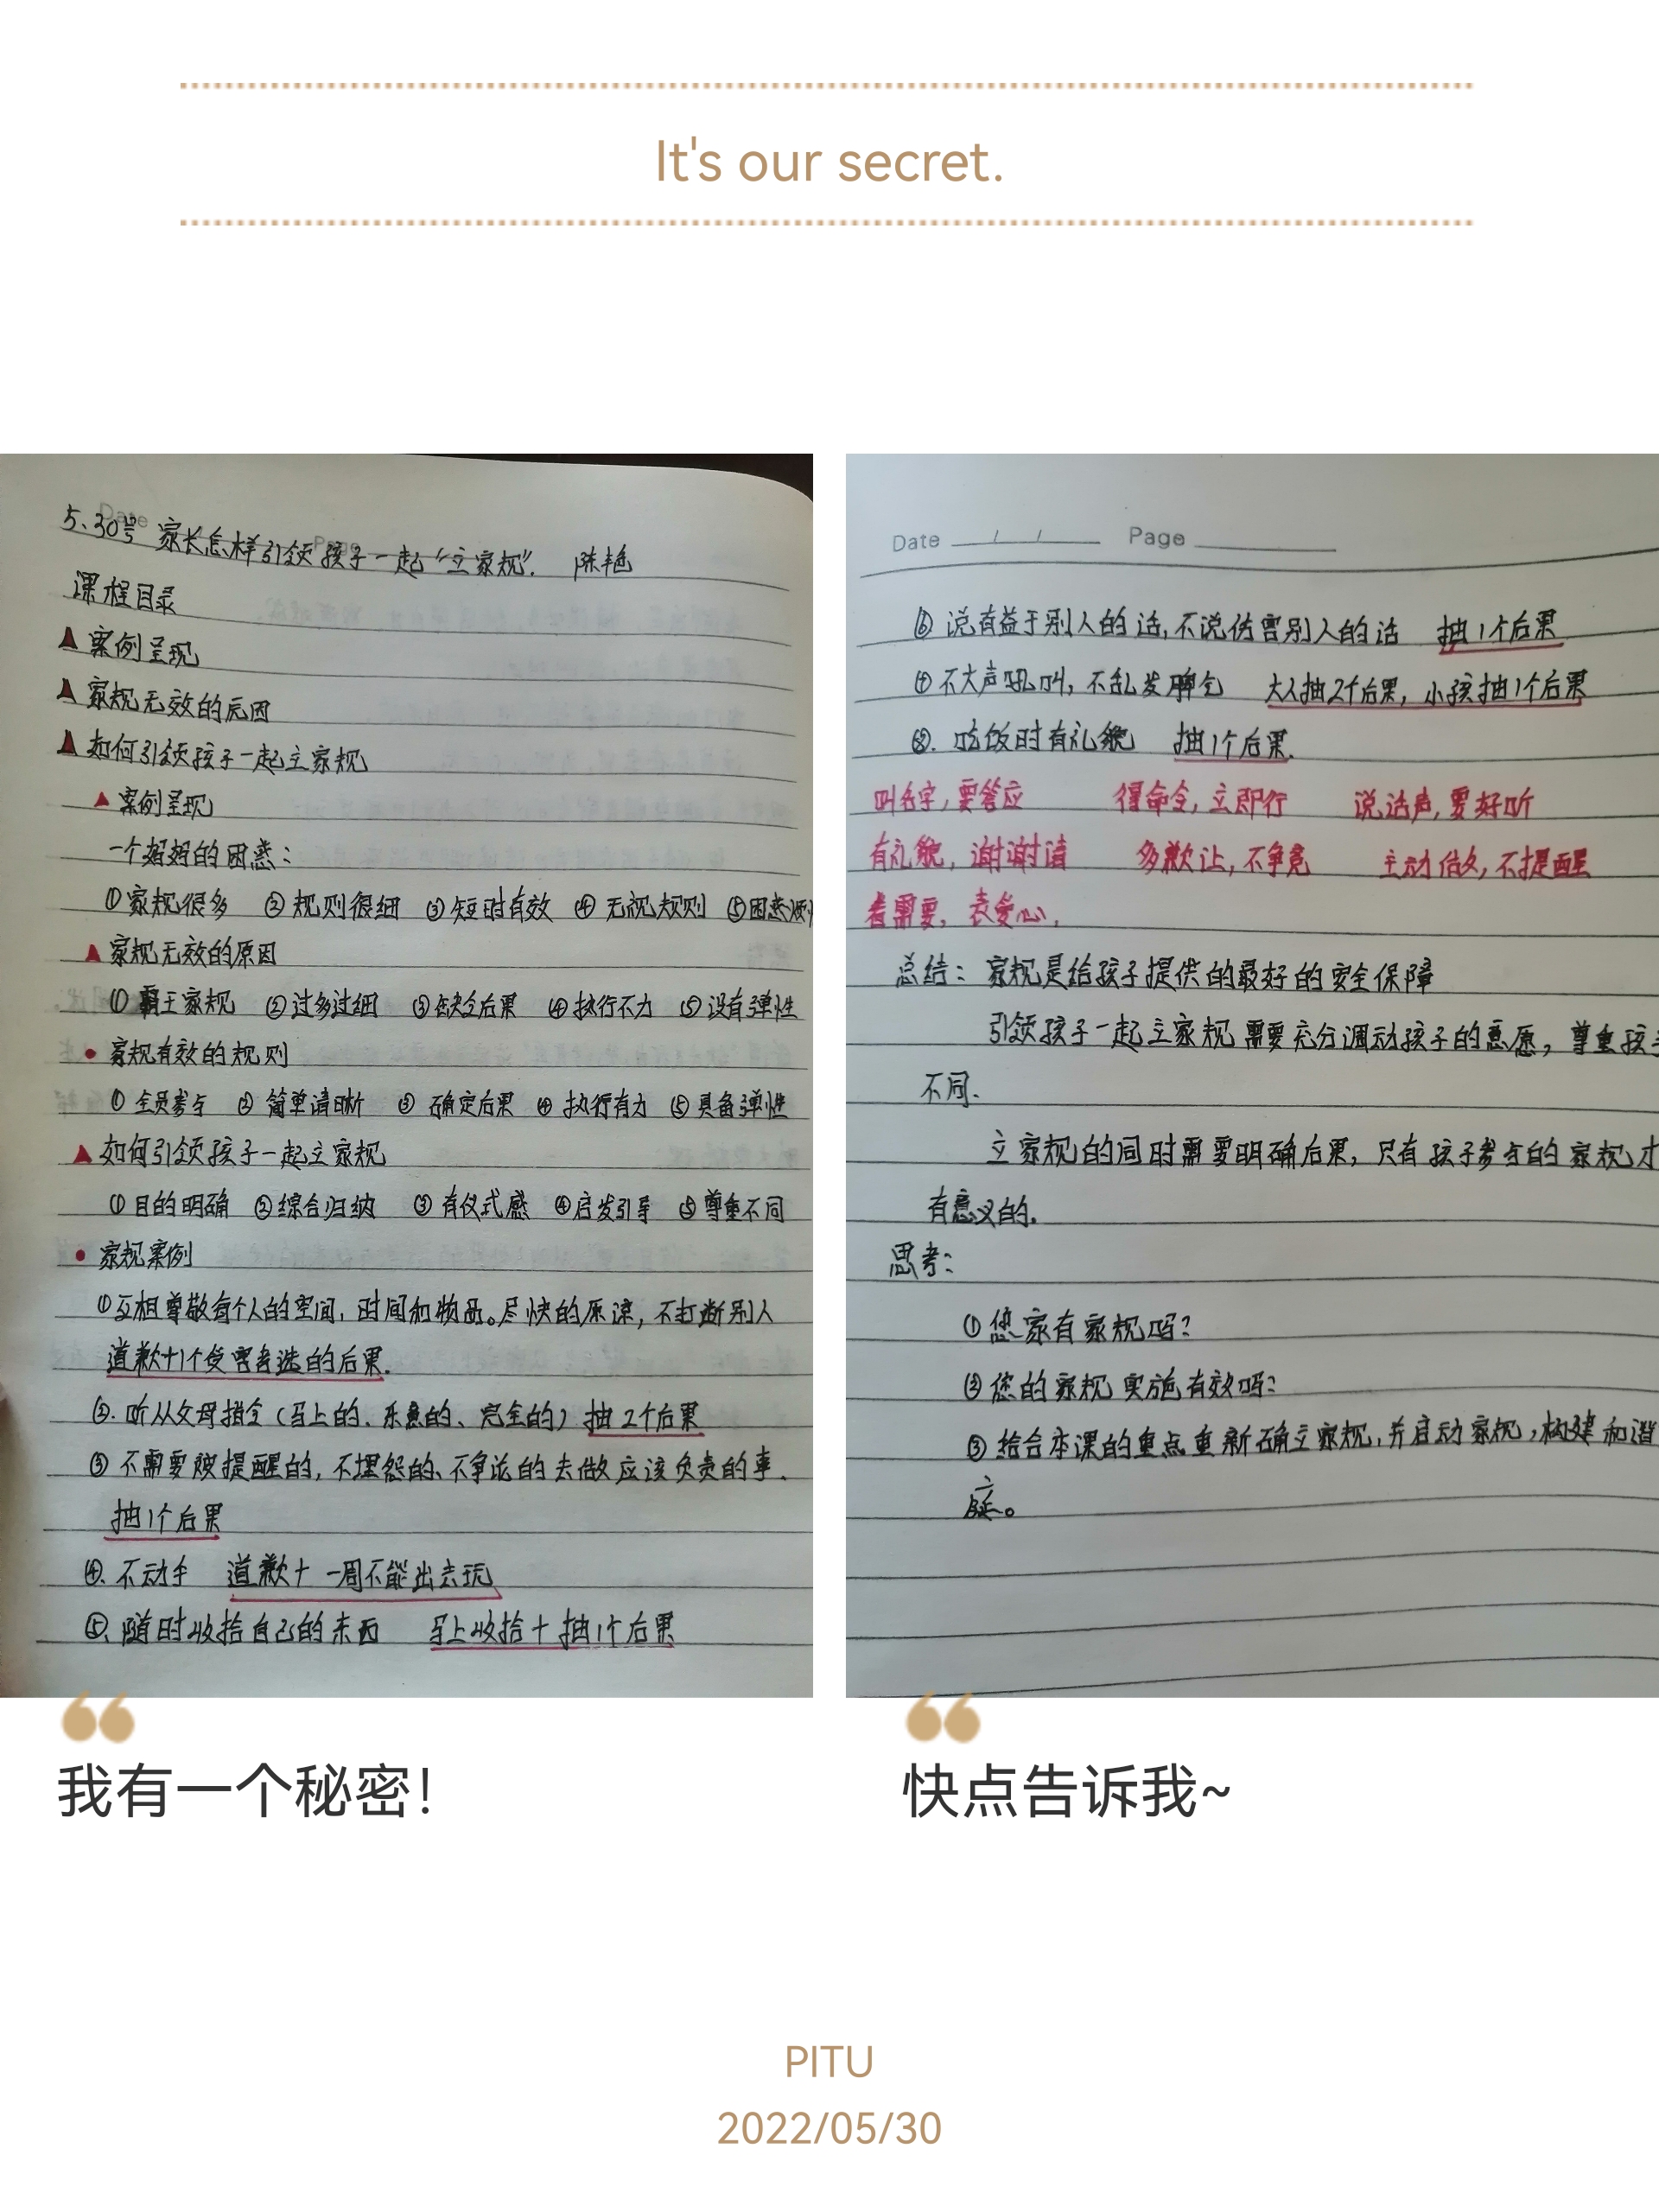 It's our secret.
Date
Page
5.30号 家长怎样引领孩子一起“立家规”. 陈艳
课程目录
案例呈现
家规无效的原因
如何引领孩子一起立家规
案例呈现
一个妈妈的困惑:
①家规很多 ②规则很细 ③短时有效 ④无视规则 ⑤困惑
家规无效的原因
①霸王家规 ②过多过细 ③缺乏后果 ④执行不力 ⑤没有弹性
家规有效的规则
①全员参与 ②简单清晰 ③确定后果 ④执行有力 ⑤具备弹性
如何引领孩子一起立家规
①目的明确 ②综合归纳 ③有仪式感 ④启发引导 ⑤尊重不同
家规案例
①互相尊敬每个人的空间,时间和物品。尽快的原谅,不打断别人
道歉+1个受害者选的后果.
②.听从父母指令(马上的、乐意的、完全的)抽2个后果
③不需要被提醒的,不埋怨的、不争论的去做应该负责的事.
抽1个后果
④.不动手 道歉+一周不能出去玩
⑤.随时收拾自己的东西 马上收拾+抽1个后果
Date / / Page
⑥说有益于别人的话,不说伤害别人的话 抽1个后果
⑦不大声吼叫,不乱发脾气 大人抽2个后果,小孩抽1个后果
⑧.吃饭时有礼貌 抽1个后果.
叫名字,要答应 得命令,立即行 说话声,要好听
有礼貌,谢谢请 多歉让,不争竞 主动做,不提醒
看需要,表爱心.
总结:家规是给孩子提供的最好的安全保障
引领孩子一起立家规需要充分调动孩子的意愿,尊重孩子
不同.
立家规的同时需要明确后果,只有孩子参与的家规才
有意义的.
思考:
①您家有家规吗?
②您的家规实施有效吗?
③结合本课的重点重新确立家规,并启动家规,构建和谐
庭。
我有一个秘密!
快点告诉我~
PITU
2022/05/30